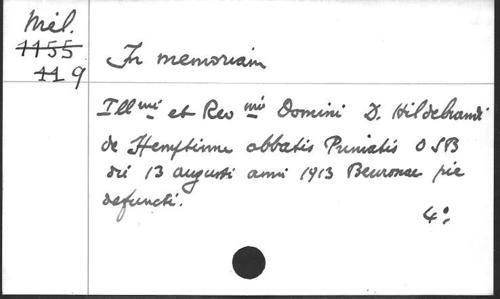 Mél.
1155
119
In memoriam
Illmi et Revmi Domini D. Hildebrandi
de Hemptinne abbatis Primatis OSB
die 13 augusti anni 1913 Beuronae pie
defuncti.
4°.